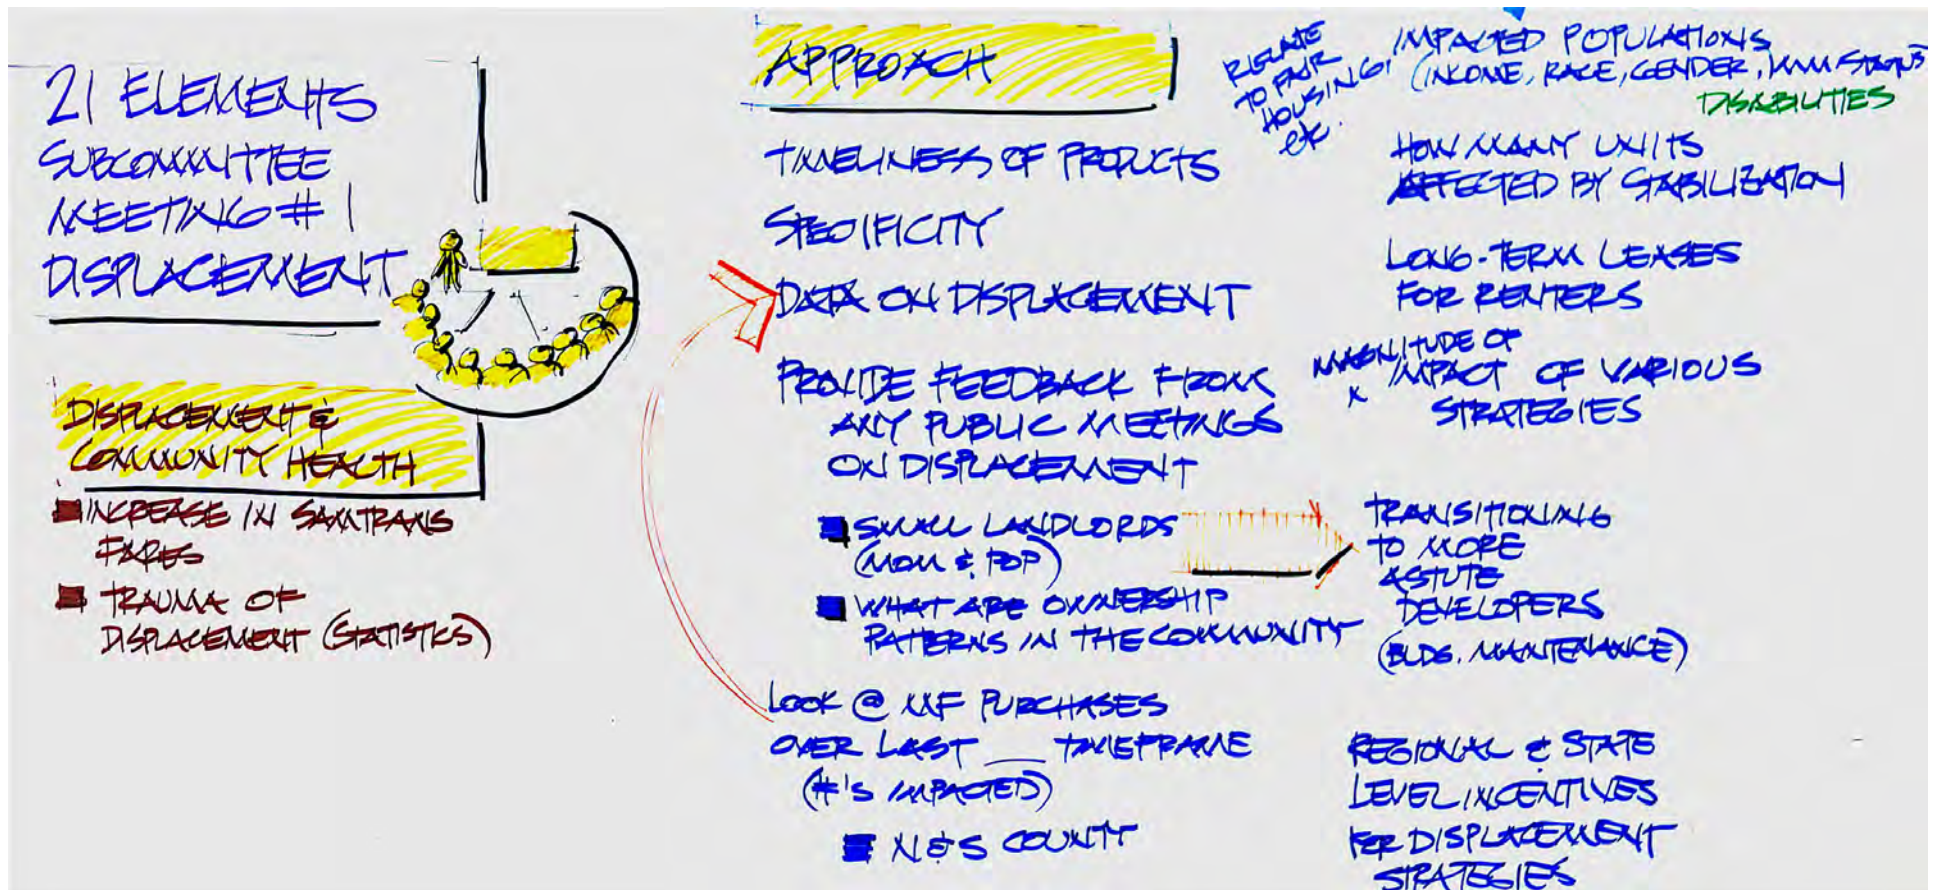 21 ELEMENTS
SUBCOMMITTEE
MEETING # 1
DISPLACEMENT
DISPLACEMENT &
COMMUNITY HEALTH
INCREASE IN SAMTRANS
FARES
TRAUMA OF
DISPLACEMENT (STATISTICS)
APPROACH
TIMELINESS OF PRODUCTS
SPECIFICITY
DATA ON DISPLACEMENT
PROVIDE FEEDBACK FROM
ANY PUBLIC MEETINGS
ON DISPLACEMENT
SMALL LANDLORDS
(MOM & POP)
WHAT ARE OWNERSHIP
PATTERNS IN THE COMMUNITY
LOOK @ MF PURCHASES
OVER LAST __ TIMEFRAME
(#'S IMPACTED)
N & S COUNTY
RELATE
TO FAIR
HOUSING,
etc.
IMPACTED POPULATIONS
(INCOME, RACE, GENDER, IMM STATUS)
DISABILITIES
HOW MANY UNITS
AFFECTED BY STABILIZATION
LONG-TERM LEASES
FOR RENTERS
MAGNITUDE OF
x IMPACT OF VARIOUS
STRATEGIES
TRANSITIONING
TO MORE
ASTUTE
DEVELOPERS
(BLDG. MAINTENANCE)
REGIONAL & STATE
LEVEL INCENTIVES
FOR DISPLACEMENT
STRATEGIES